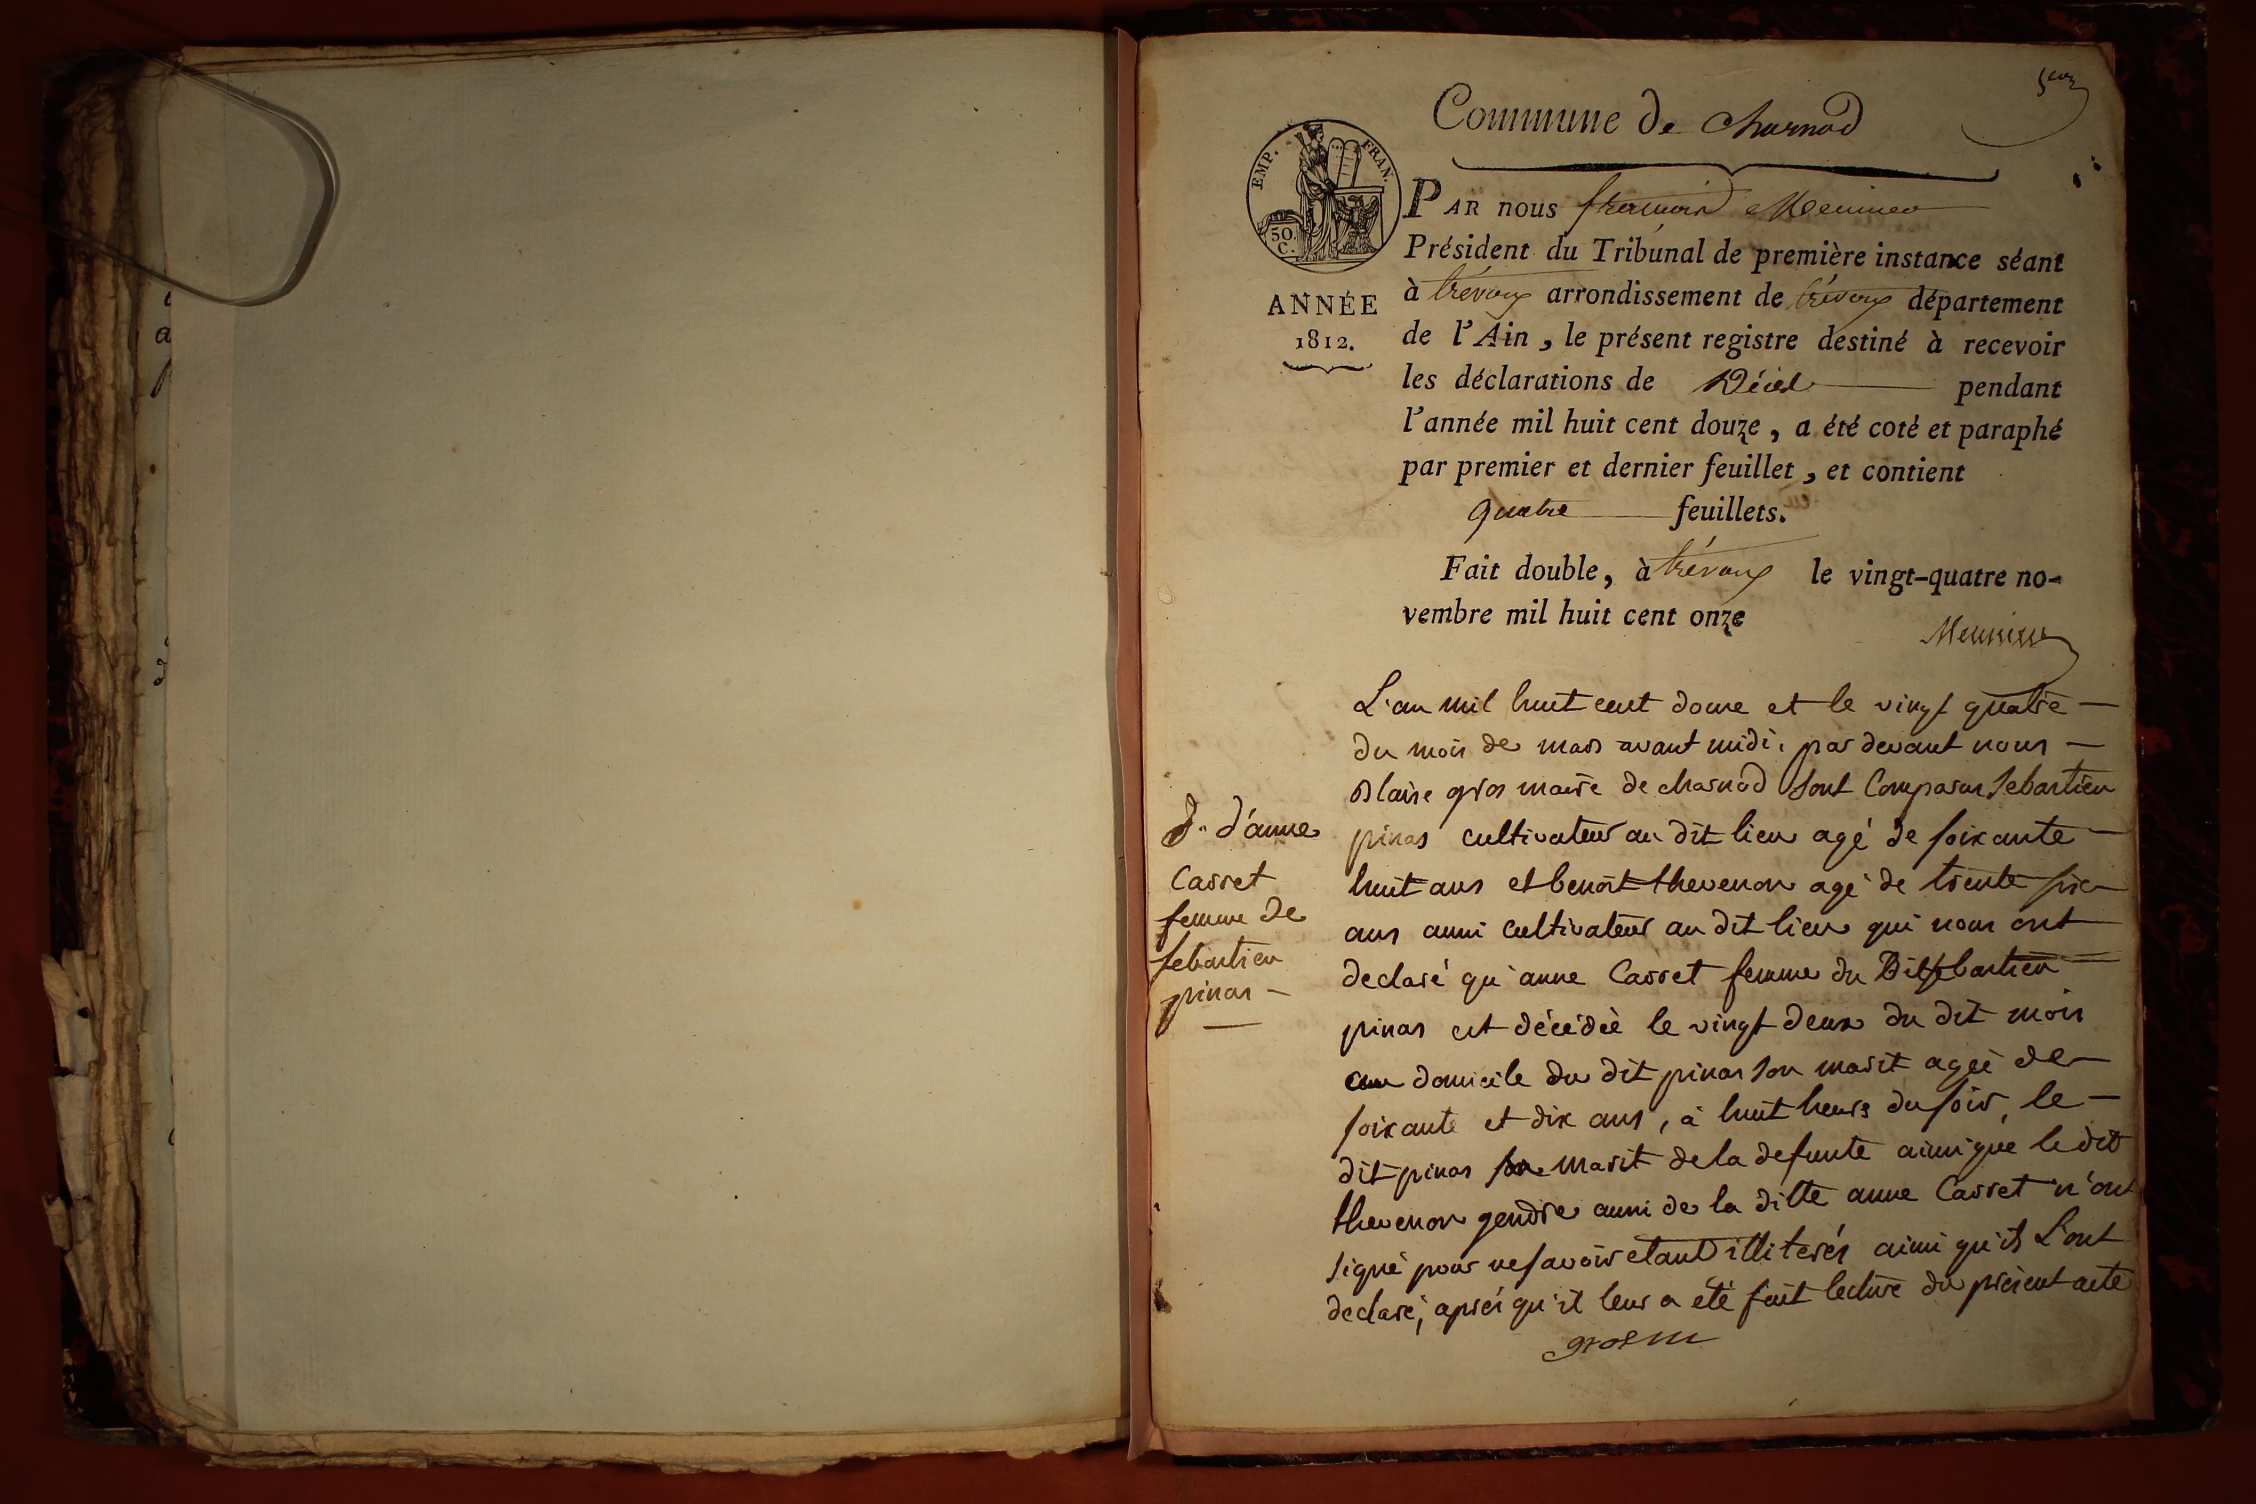 Commune de charnod
EMP. FRAN.
50.
C.
ANNÉE
1812.
PAR nous
Président du Tribunal de première instance séant
à trévoux arrondissement de trévoux département
de l'Ain, le présent registre destiné à recevoir
les déclarations de Décès pendant
l'année mil huit cent douze, a été coté et paraphé
par premier et dernier feuillet, et contient
quatre feuillets.
Fait double, à trévoux le vingt-quatre no-
vembre mil huit cent onze
D. d'anne
Carret
femme de
sebastien
pinar
L'an mil huit cent douze et le vingt quatre
du mois de mars avant midi, par devant nous
Blaise gros maire de charnod sont Comparus Sebastien
pinar cultivateur au dit lieu agé de soixante
huit ans et benoit thevenon agé de trente six
ans aussi cultivateur au dit lieu qui nous ont
declaré qu'anne Carret femme du Dit sebastien
pinar est décédèe le vingt deux du dit mois
au domicile du dit pinar son marit agée de
soixante et dix ans, à huit heurs du soir, le
dit pinar marit de la defunte ainsi que le dit
thevenon gendre aussi de la ditte anne Carret n'ont
signé pour ne savoir etant illiterés ainsi qu'ils L'ont
declaré, aprés qu'il leur a été fait lecture du présent acte
gros m